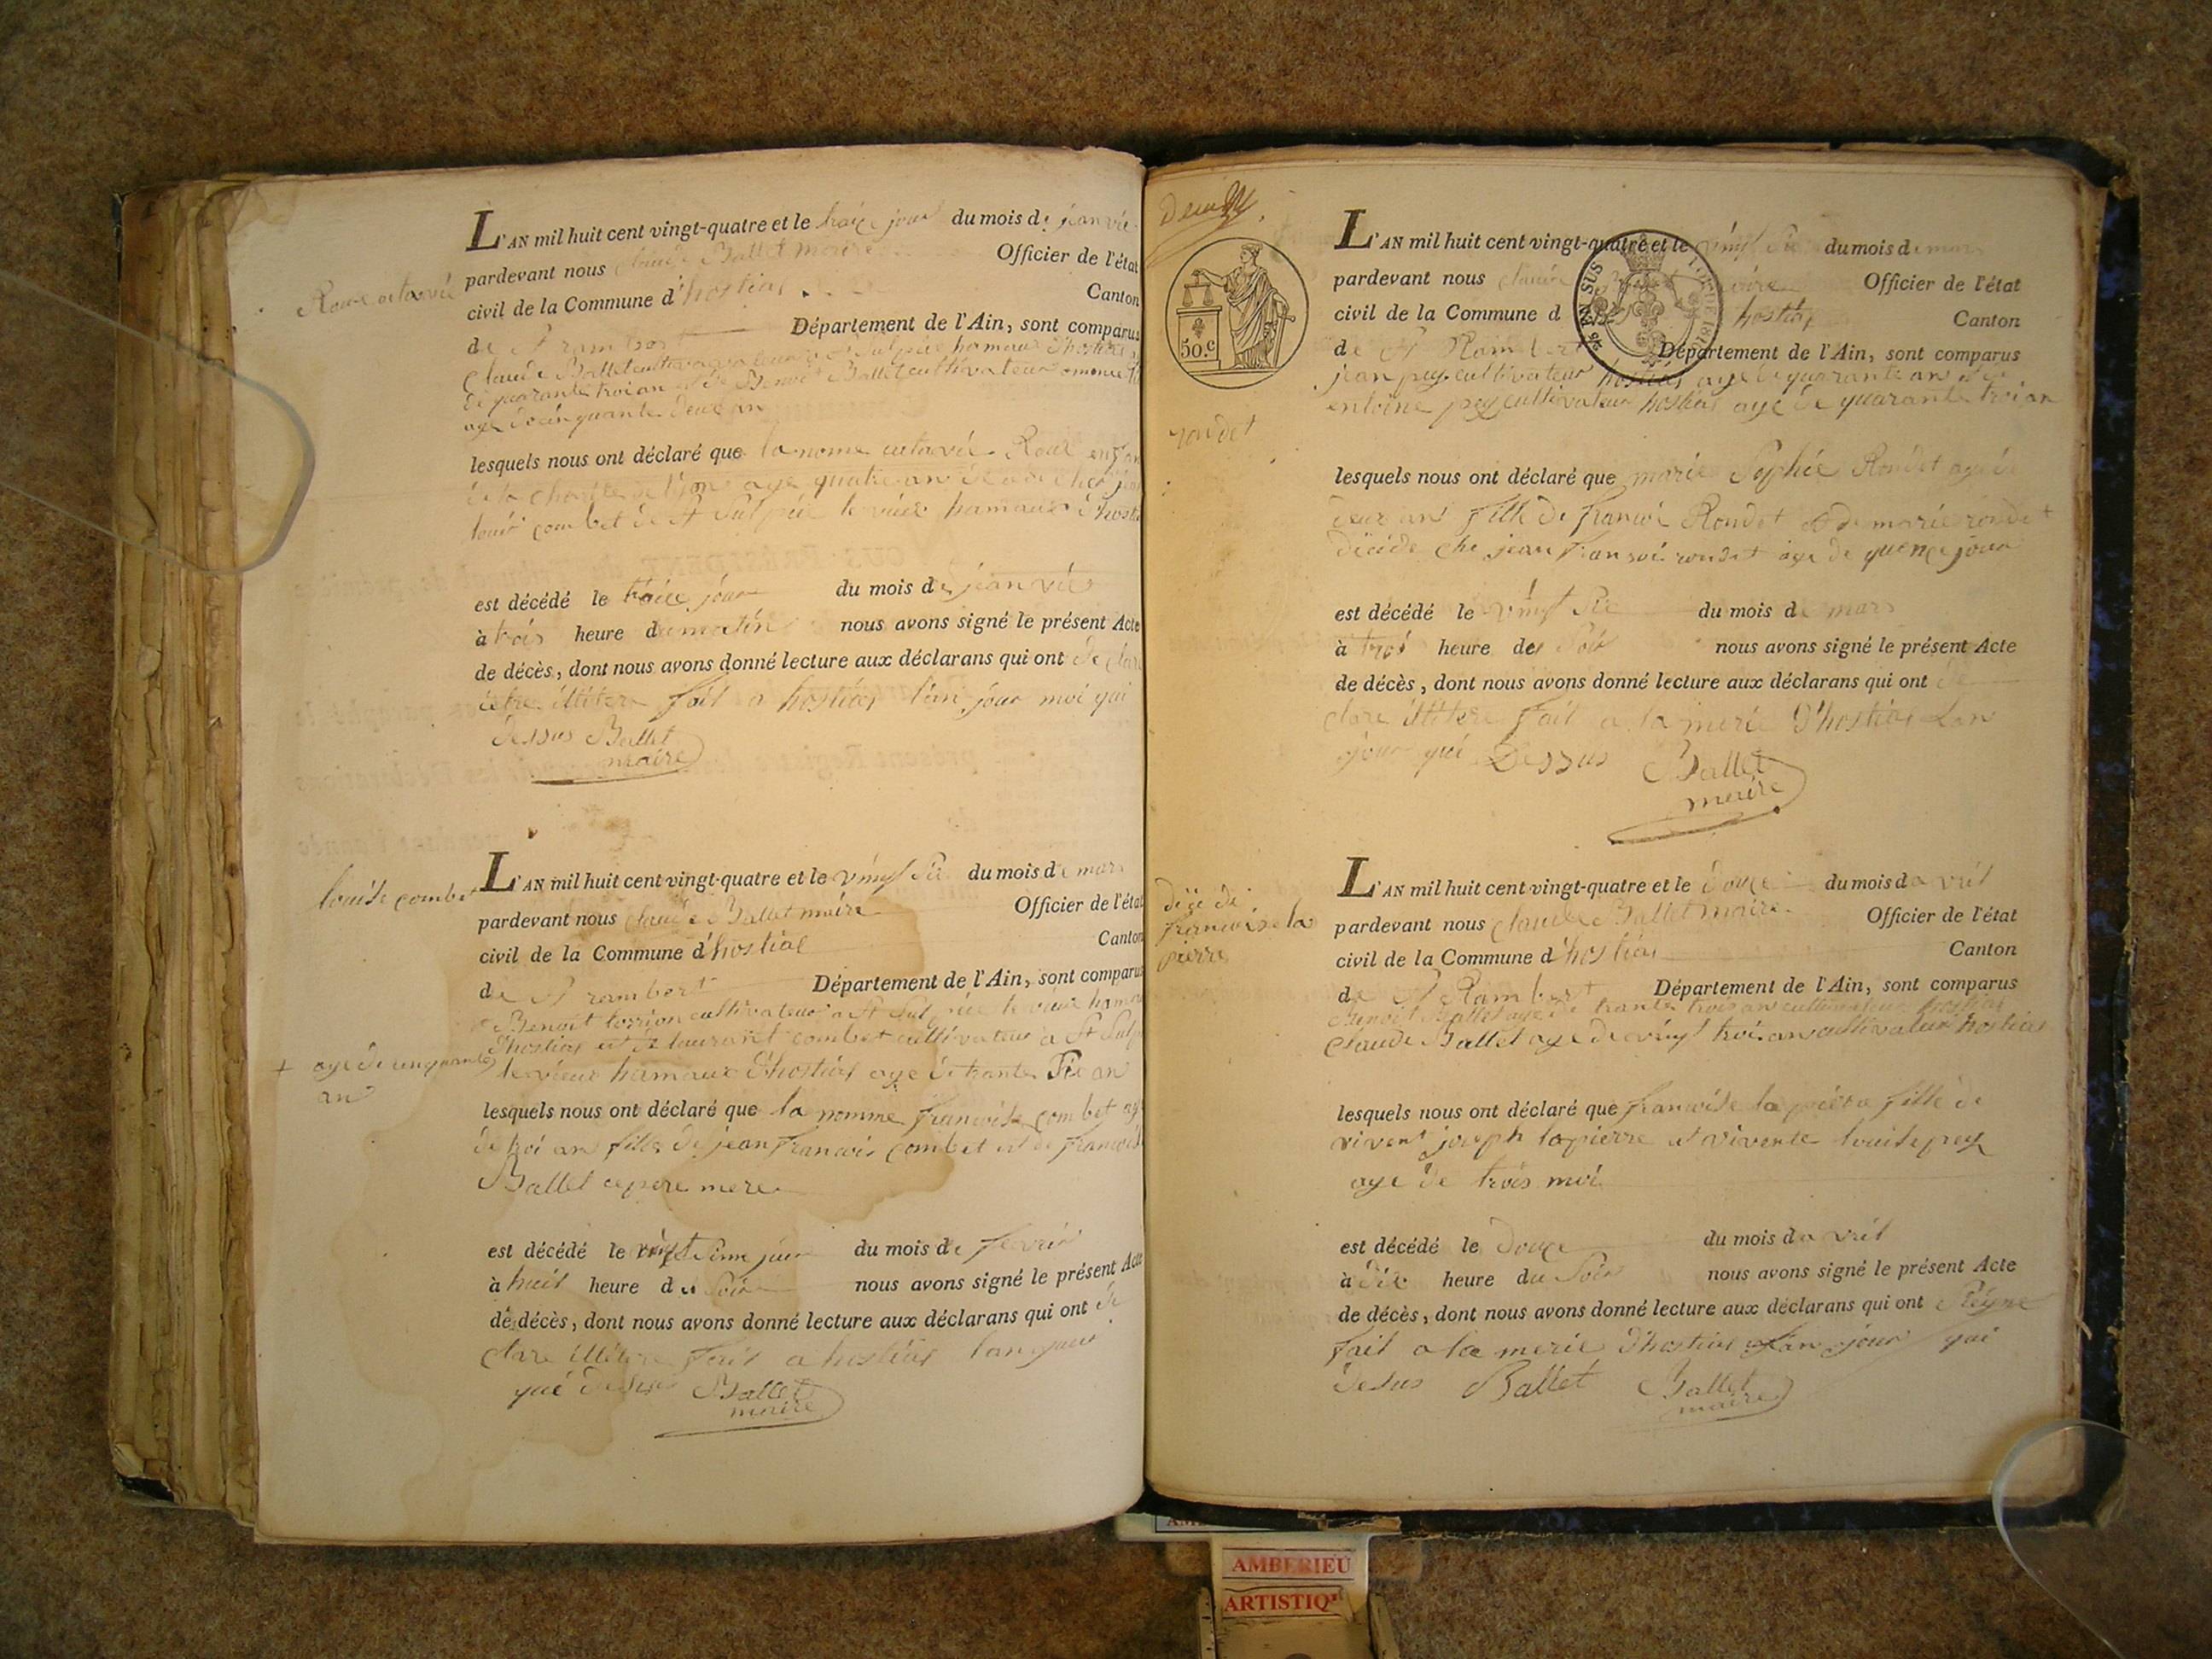 Roux octavie
L'AN mil huit cent vingt-quatre et le traice jour du mois de jeanvie
pardevant nous claude Ballet maire Officier de l'état
civil de la Commune d'hostias Canton
de St rambert Département de l'Ain, sont comparus
Claude Ballet cultivateur St Sulpice hameau d'hostias
de quarante troi an et de Benoit Ballet cultivateur
age de cinquante deux an
lesquels nous ont déclaré que la nomé octavie Roux enfan
de la charite de lion age quatre an
combet de St Sulpice le vieux hamaux d'hostias
est décédé le traice jour du mois de jeanvier
à trois heure du matin nous avons signé le présent Acte
de décès, dont nous avons donné lecture aux déclarans qui ont de clare
etre illitere fait a hostias l'an jour moi qui
dessus Ballet
maire
louise combet
L'AN mil huit cent vingt-quatre et le vingt Sis du mois de mars
pardevant nous claude Ballet maire Officier de l'état
civil de la Commune d'hostias Canton
de St rambert Département de l'Ain, sont comparus
Benoit cultivateur a St Sulpice le vieux hamau
d'hostias et de laurant combet cultivateur a St Sulp
+ age de cinquante
an
le vieux hamaux d'hostias age de trante Six an
lesquels nous ont déclaré que la nomme francoise combet age
de troi an fille de jean francois combet et de francoise
Ballet ce pere mere
est décédé le vingt jour du mois de fevrié
à huit heure du Soir nous avons signé le présent Acte
de décès, dont nous avons donné lecture aux déclarans qui ont de
clare illitere fait a hostias lan jour
qui desus Ballet
maire
50.c
EN SUS
L'AN mil huit cent vingt-quatre et le vingt Sis du mois de mars
pardevant nous claude Ballet maire Officier de l'état
civil de la Commune d hostias Canton
de St Rambert Département de l'Ain, sont comparus
jean pey cultivateur hostias age de quarante an et de
entoine pey cultivateur hostias age de quarante troi an
rondet
lesquels nous ont déclaré que marie Sophie Rondet age de
deux an fille de francoi Rondet et de marie rondet
décéde che jean fransoi rondet age de quence jour
est décédé le vingt Sis du mois de mars
à troi heure de Soir nous avons signé le présent Acte
de décès, dont nous avons donné lecture aux déclarans qui ont de
clare illitere fait a la merie d'hostias Lan
jour qui Dessus Ballet
maire
L'AN mil huit cent vingt-quatre et le douze du mois d avril
déçé de
francoise la
pierre
pardevant nous claude Ballet maire Officier de l'état
civil de la Commune d hostias Canton
de St Rambert Département de l'Ain, sont comparus
Benoit Ballet age de trante trois an cultivateur hostias
Claude Ballet age de vingt troi an cultivateur hostias
lesquels nous ont déclaré que francoise la piere fille de
vivent joseph lapierre et vivente louise pey
age de trois moi
est décédé le douze du mois d avril
à dix heure du Soir nous avons signé le présent Acte
de décès, dont nous avons donné lecture aux déclarans qui ont Signe
fait a la merie d'hostias Lan jour qui
desus Ballet Ballet
maire
AMBERIEU
ARTISTIQ